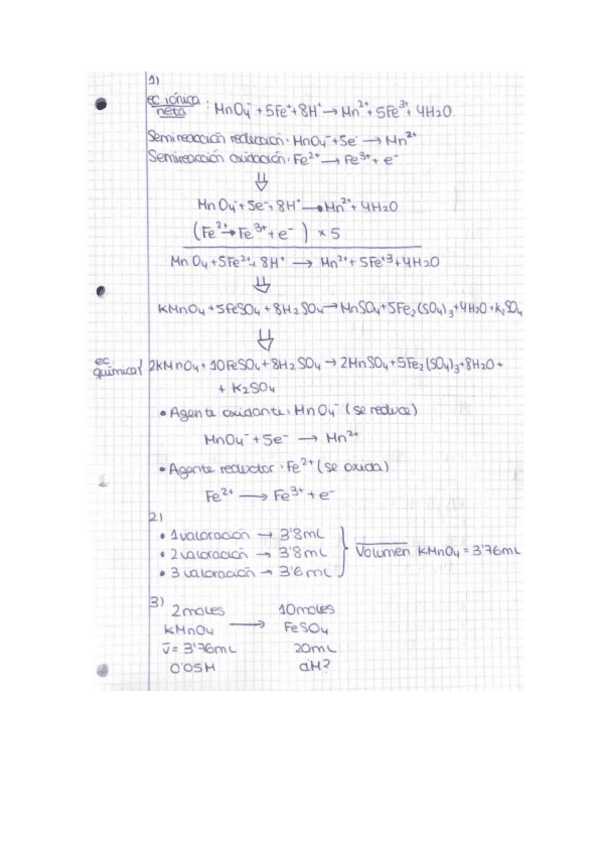 1)
ec iónica
neta : MnO₄⁻ + 5Fe⁺ + 8H⁺ → Mn²⁺ + 5Fe³⁺ + 4H₂O
Semireacción reducción: MnO₄⁻ + 5e⁻ → Mn²⁺
Semireacción oxidación: Fe²⁺ → Fe³⁺ + e⁻
⇓
MnO₄⁻ + 5e⁻ + 8H⁺ → Mn²⁺ + 4H₂O
(Fe²⁺ → Fe³⁺ + e⁻ ) × 5
MnO₄ + 5Fe²⁺ + 8H⁺ → Mn²⁺ + 5Fe⁺³ + 4H₂O
⇓
KMnO₄ + 5FeSO₄ + 8H₂SO₄ → MnSO₄ + 5Fe₂(SO₄)₃ + 4H₂O + K₂SO₄
⇓
ec.
química { 2KMnO₄ + 10FeSO₄ + 8H₂SO₄ → 2MnSO₄ + 5Fe₂(SO₄)₃ + 8H₂O +
+ K₂SO₄
• Agente oxidante: MnO₄⁻ (se reduce)
MnO₄⁻ + 5e⁻ → Mn²⁺
• Agente reductor: Fe²⁺ (se oxida)
Fe²⁺ → Fe³⁺ + e⁻
2)
• 1 valoración → 3'8mL
• 2 valoración → 3'8mL } Volumen KMnO₄ = 3'76mL
• 3 valoración → 3'6mL
3) 2moles 10moles
KMnO₄ → FeSO₄
V̄ = 3'76mL 20mL
0'05M dM?